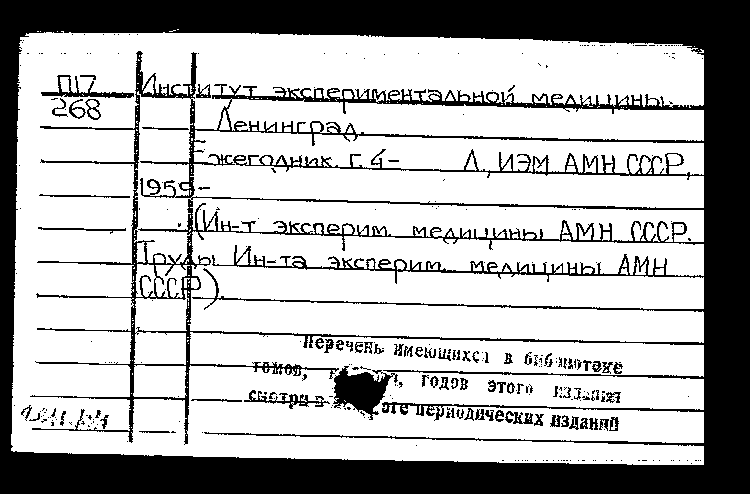 П17 Институт экспериментальной медицины.
268 Ленинград.
Ежегодник. Г. 4- Л., ИЭМ АМН СССР,
1959-
(Ин-т эксперим. медицины АМН СССР.
Труды Ин-та эксперим. медицины АМН
СССР).
Перечень имеющихся в библиотеке
томов, годов этого издания
смотри в периодических изданий